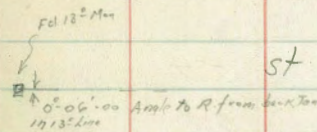 Fd 13" Mon
St
0°-06'-00 Angle to R from back Tan
in 13" Line